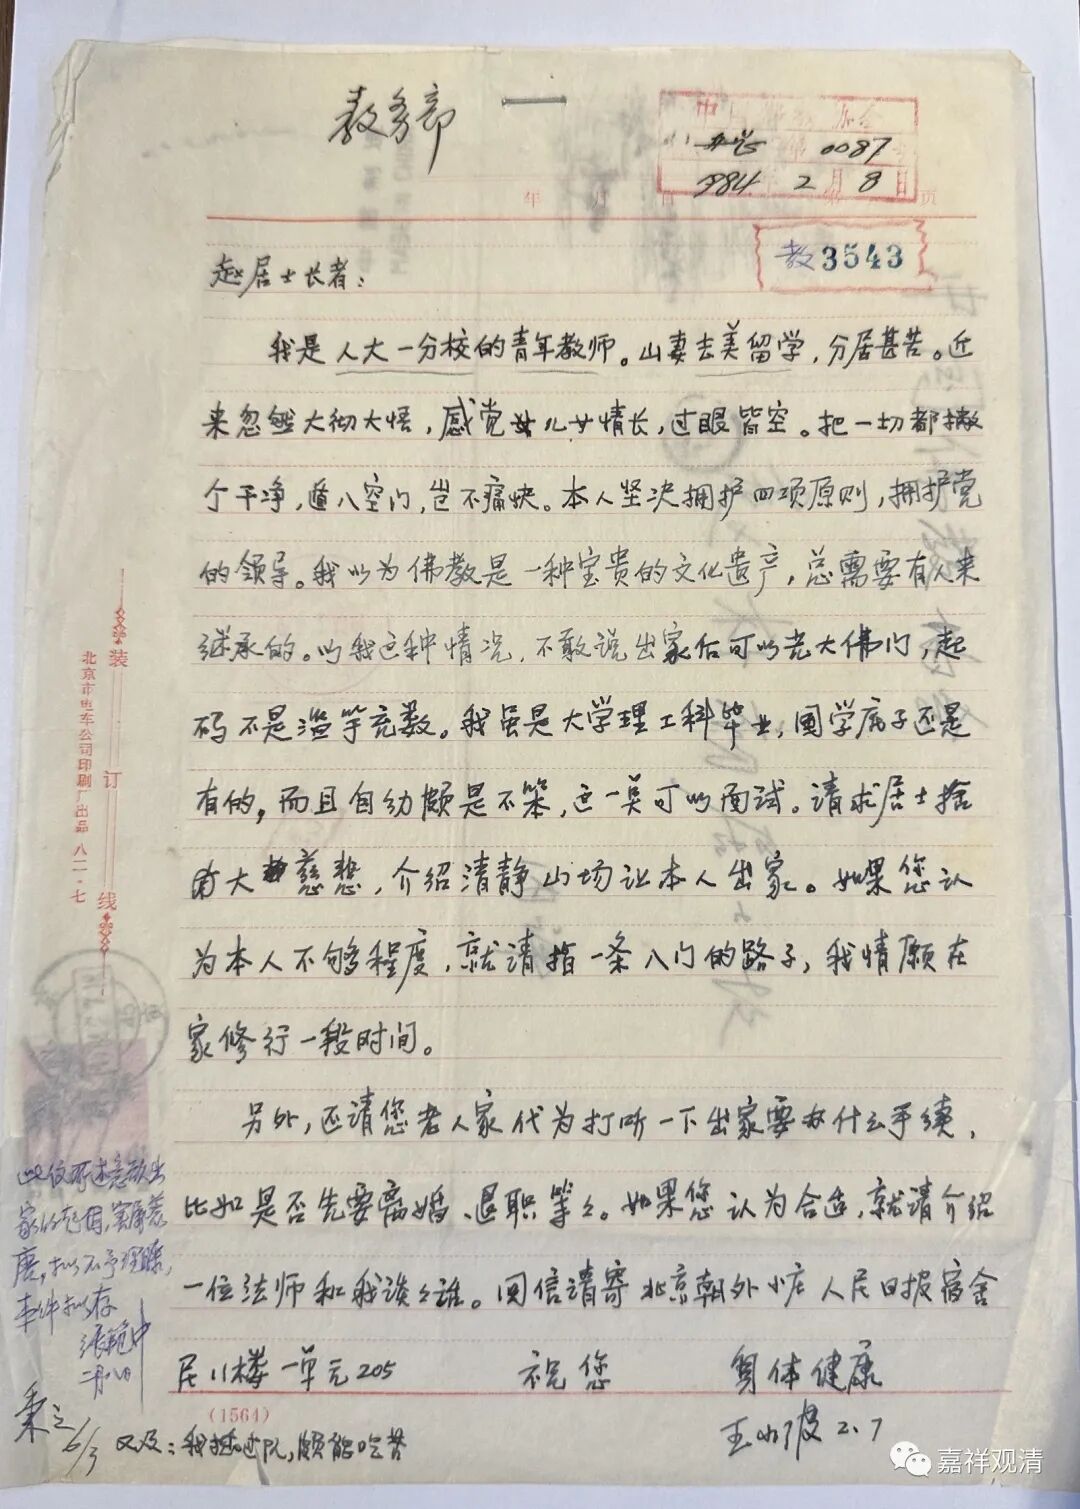 教务部
0087
1984 2月8日
年 月 日 第 页
教3543
赵居士长者：
我是人大一分校的青年教师。山妻去美留学，分居甚苦。近
来忽然大彻大悟，感觉儿女情长，过眼皆空。把一切都撇
个干净，遁入空门，岂不痛快。本人坚决拥护四项原则，拥护党
的领导。我以为佛教是一种宝贵的文化遗产，总需要有人来
继承的。以我这种情况，不敢说出家后可以光大佛门，起
码不是滥竽充数。我虽是大学理工科毕业，国学底子还是
有的，而且自幼颇是不笨，这一莫可以面试。请求居士捨
由大慈悲，介绍清静山场让本人出家。如果您认
为本人不够程度，就请指一条入门的路子，我情愿在
家修行一段时间。
另外，还请您老人家代为打听一下出家要办什么手续，
比如是否先要离婚、退职等々。如果您认为合适，就请介绍
一位法师和我谈々谁。回信请寄北京朝外小庄人民日报宿舍
尼11楼一单元205 祝您 身体健康
王小波 2.7
(1564)
又及：我插过队，颇能吃苦
装订线
北京市电车公司印刷厂出品 八二·七
此位所述意欲出
家的起因，实属荒
唐，拟不予理睬，
来件拟存
二月八日
6/3
嘉祥观清